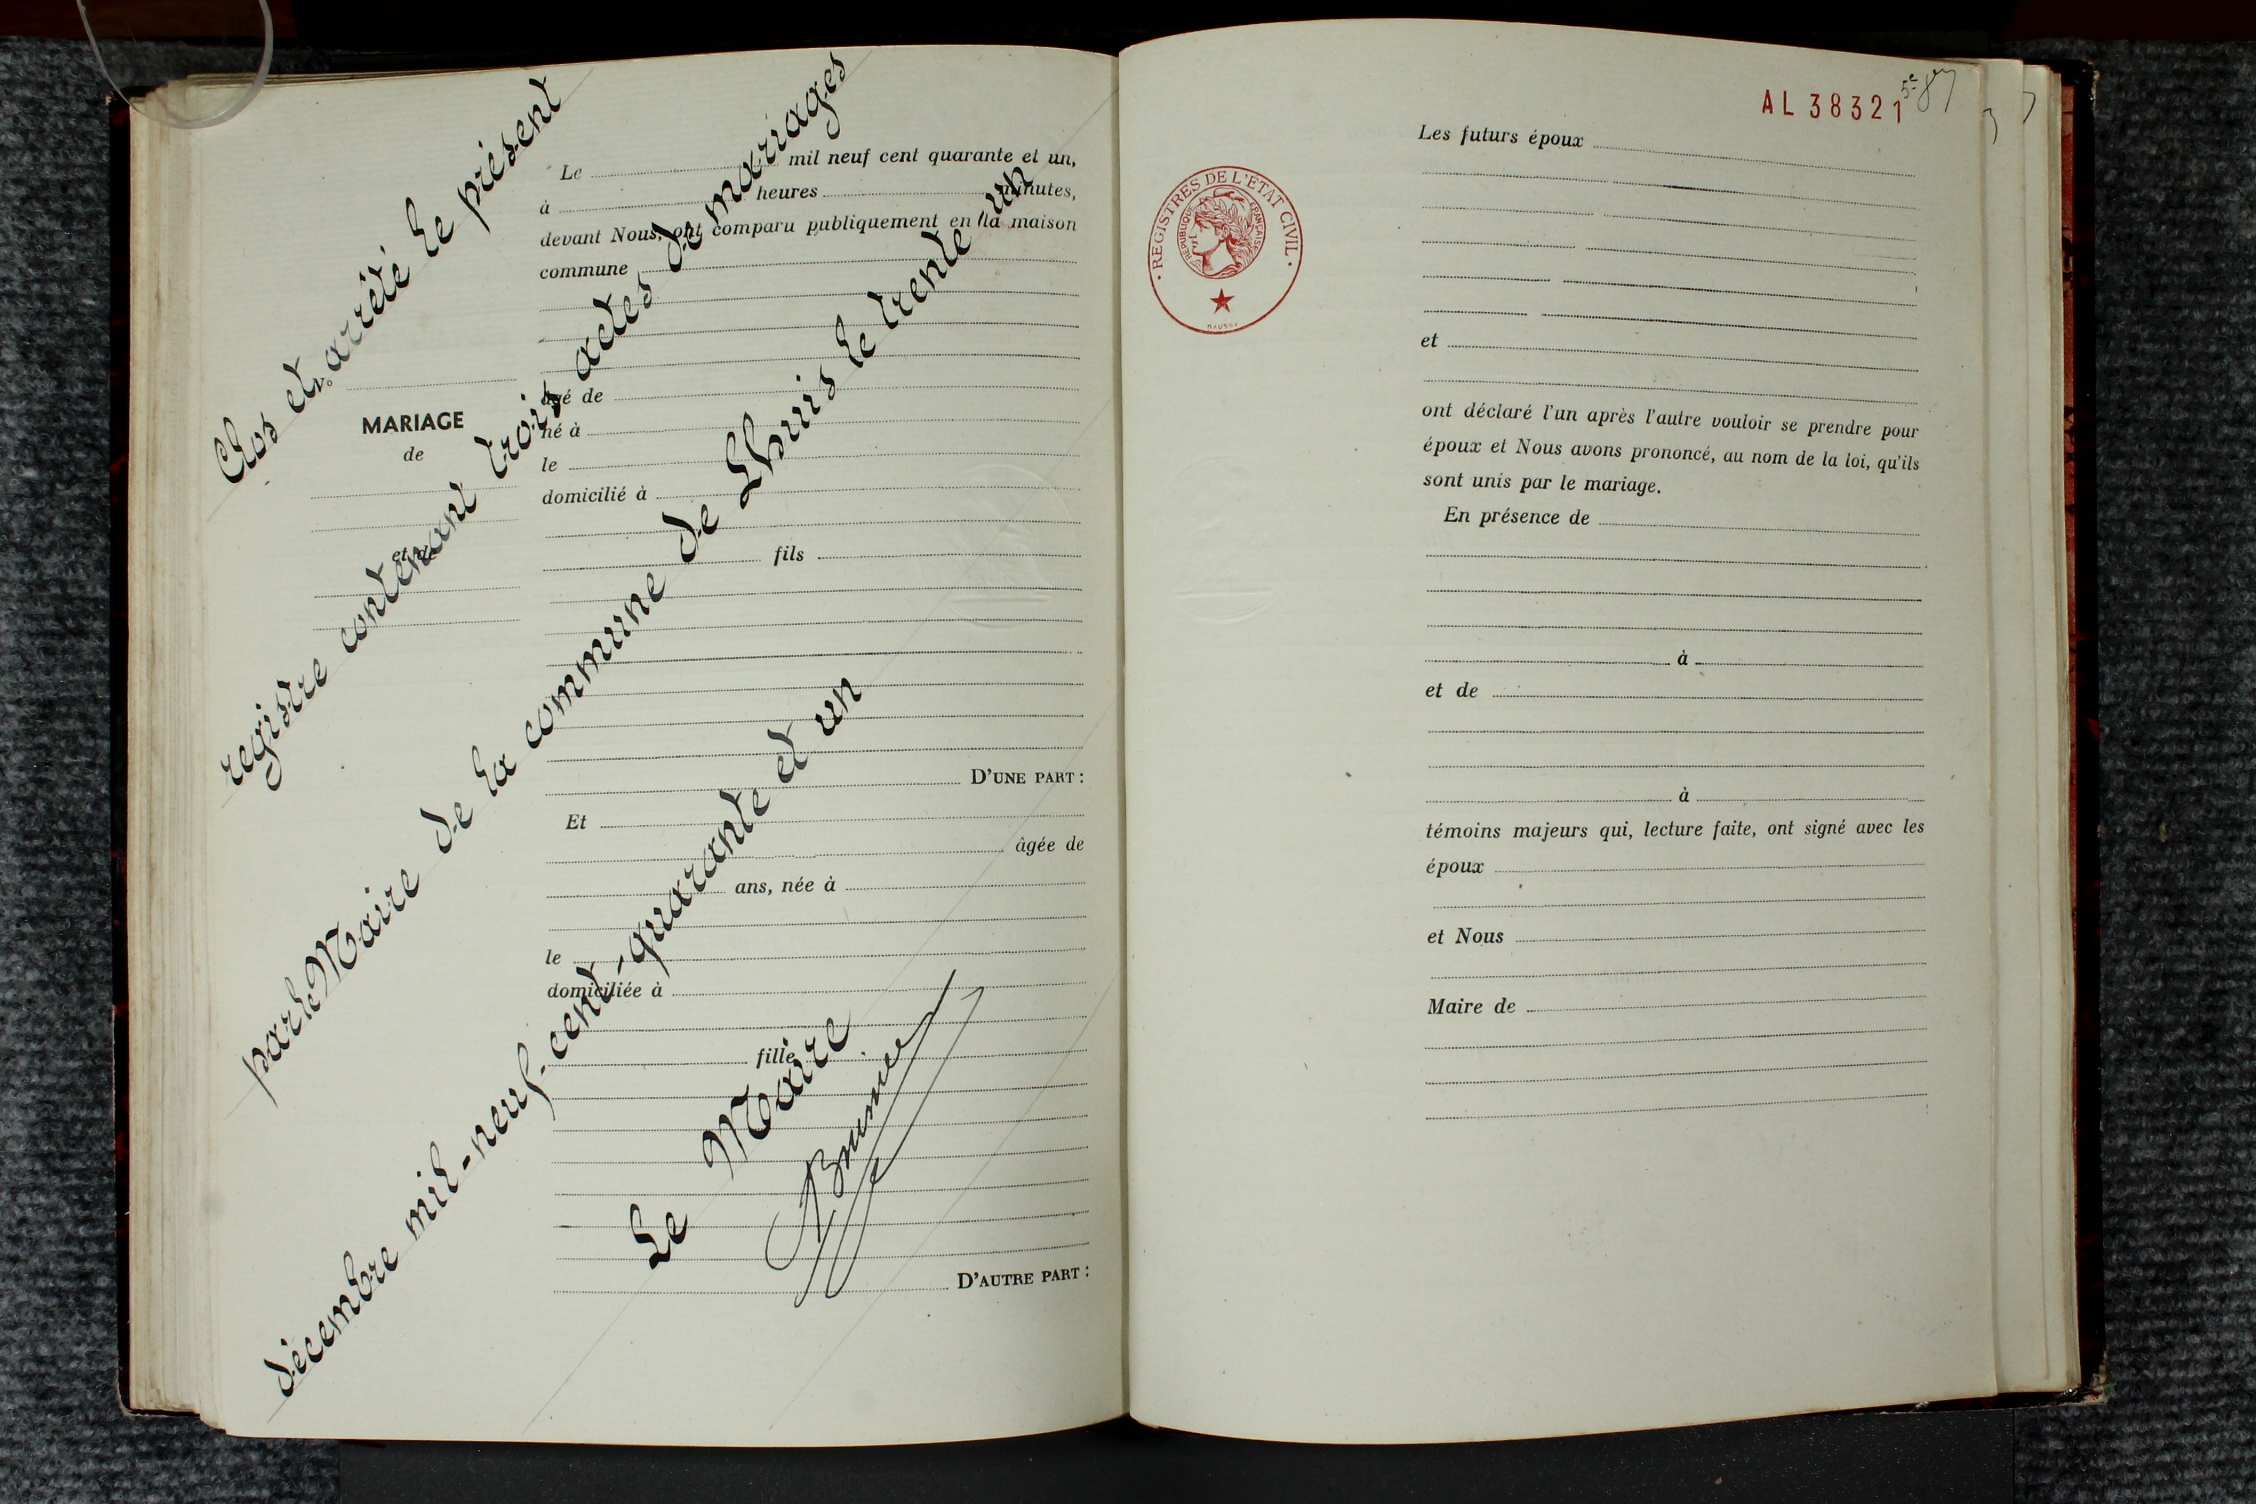 Clos et arrêté le présent
registre contenant trois actes de mariages
par le Maire de la commune de Lhuis le trente un
décembre mil-neuf-cent-quarante et un
Le Maire
N°
MARIAGE
de
et de
Le mil neuf cent quarante et un,
à heures minutes,
devant Nous, ont comparu publiquement en la maison
commune
âgé de
né à
le
domicilié à
fils
D'UNE PART :
Et
âgée de
ans, née à
le
domiciliée à
fille
D'AUTRE PART :
AL 38321
REGISTRES DE L'ETAT CIVIL
REPUBLIQUE FRANÇAISE
Les futurs époux
et
ont déclaré l'un après l'autre vouloir se prendre pour
époux et Nous avons prononcé, au nom de la loi, qu'ils
sont unis par le mariage.
En présence de
à
et de
à
témoins majeurs qui, lecture faite, ont signé avec les
époux
et Nous
Maire de